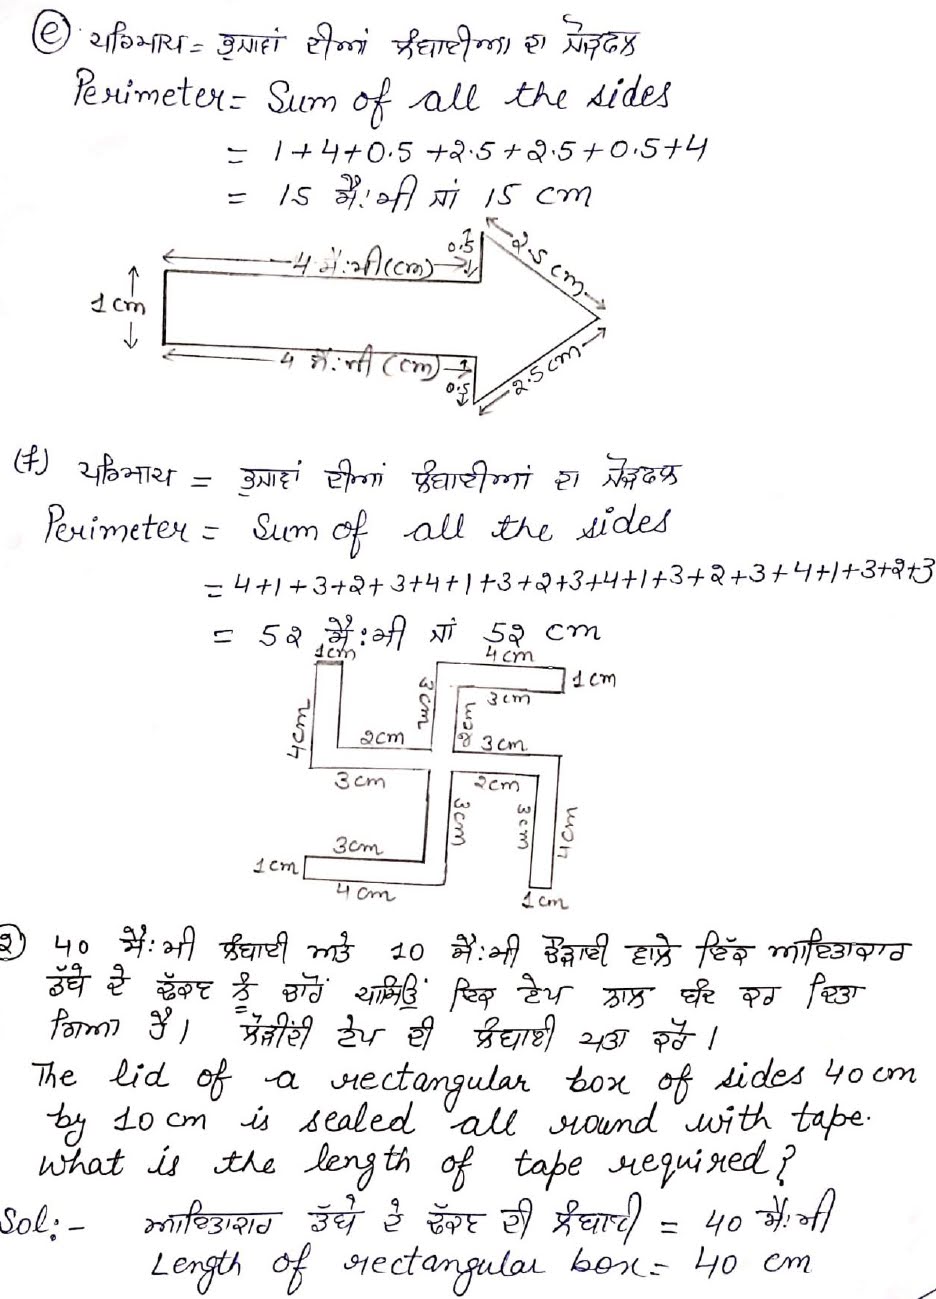 (e) ਪਰਿਮਾਪ = ਭੁਜਾਵਾਂ ਦੀਆਂ ਲੰਬਾਈਆਂ ਦਾ ਜੋੜਫਲ
Perimeter = Sum of all the sides
= 1+4+0.5+2.5+2.5+0.5+4
= 15 ਸੈ:ਮੀ ਜਾਂ 15 cm
0.5
2.5 cm
4 ਸੈ:ਮੀ (cm)
1 cm
4 ਸੈ:ਮੀ (cm)
0.5
2.5 cm
(f) ਪਰਿਮਾਪ = ਭੁਜਾਵਾਂ ਦੀਆਂ ਲੰਬਾਈਆਂ ਦਾ ਜੋੜਫਲ
Perimeter = Sum of all the sides
= 4+1+3+2+3+4+1+3+2+3+4+1+3+2+3+4+1+3+2+3
= 52 ਸੈ:ਮੀ ਜਾਂ 52 cm
1cm
4cm
1cm
3cm
3cm
4cm
2cm
2cm
3cm
3cm
2cm
3cm
3cm
4cm
3cm
1cm
4cm
1cm
2) 40 ਸੈ:ਮੀ ਲੰਬਾਈ ਅਤੇ 10 ਸੈ:ਮੀ ਚੌੜਾਈ ਵਾਲੇ ਇੱਕ ਆਇਤਾਕਾਰ
ਡੱਬੇ ਦੇ ਢੱਕਣ ਨੂੰ ਚਾਰੋਂ ਪਾਸਿਉਂ ਇਕ ਟੇਪ ਨਾਲ ਬੰਦ ਕਰ ਦਿਤਾ
ਗਿਆ ਹੈ। ਲੋੜੀਂਦੀ ਟੇਪ ਦੀ ਲੰਬਾਈ ਪਤਾ ਕਰੋ।
The lid of a rectangular box of sides 40 cm
by 10 cm is sealed all round with tape.
What is the length of tape required?
Sol:- ਆਇਤਾਕਾਰ ਡੱਬੇ ਦੇ ਢੱਕਣ ਦੀ ਲੰਬਾਈ = 40 ਸੈ:ਮੀ
Length of rectangular box = 40 cm